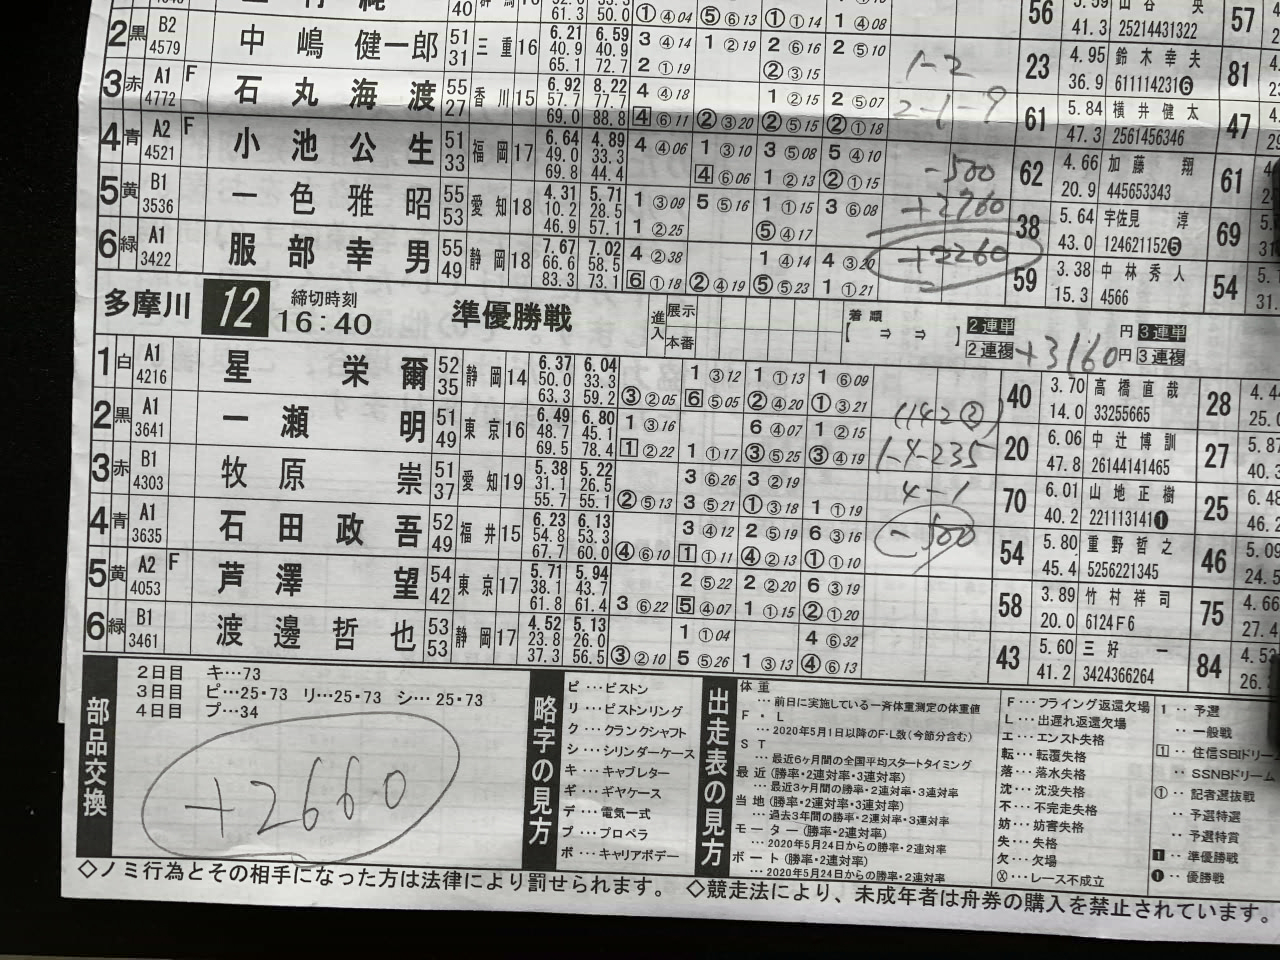 40 61.3 50.0 ①④04 ⑤⑥13 ①①14 1④08 56 41.3 25214431322 57
2 黒 B2 4579 中嶋健一郎 51 31 三重 16 6.21 40.9 65.1 6.59 40.9 72.7 3④14 1②19 2⑥16 2⑤10 2①19 ②③15 1-2 23 4.95 36.9 鈴木幸夫 611114231❻ 81
3 赤 A1 4772 F 石丸海渡 55 27 香川 15 6.92 57.7 69.0 8.22 77.7 88.8 4④18 1②15 2⑤07 4⑥11 ②③20 ②⑤15 ②①18 2-1-9 61 5.84 47.3 横井健太 2561456346 47
4 青 A2 4521 F 小池公生 51 33 福岡 17 6.64 49.0 69.8 4.89 33.3 44.4 4④06 1③10 3⑤08 5④10 4⑥06 1②13 ②①15 -500 62 4.66 20.9 加藤翔 445653343 61
5 黄 B1 3536 一色雅昭 55 53 愛知 18 4.31 10.2 46.9 5.71 28.5 57.1 1③09 5⑤16 1①15 3⑥08 1②25 ⑤④17 +2760 38 5.64 43.0 宇佐見淳 124621152❺ 69
6 緑 A1 3422 服部幸男 55 49 静岡 18 7.67 66.6 83.3 7.02 58.5 73.1 4②38 1④14 4③20 6①18 ②④19 ⑤⑤23 1①21 +2260 59 3.38 15.3 中林秀人 4566 54
多摩川 12 締切時刻 16:40 準優勝戦 進入 展示 本番 着順 【 ⇒ ⇒ 】 2連単 円 3連単 2連複 +3160 円 3連複
1 白 A1 4216 星栄爾 52 35 静岡 14 6.37 50.0 63.3 6.04 33.3 59.2 1③12 1①13 1⑥09 ③②05 6⑤05 ②④20 ①③21 40 3.70 14.0 高橋直哉 33255665 28
2 黒 A1 3641 一瀬明 51 49 東京 16 6.49 48.7 69.5 6.80 45.1 78.4 1③16 6④07 1②15 1②22 1①17 ③⑤25 ③④19 (142②) 1-4-235 20 6.06 47.8 中辻博訓 26144141465 27
3 赤 B1 4303 牧原崇 51 37 愛知 19 5.38 31.1 55.7 5.22 26.5 55.1 3⑥26 3②19 ②⑤13 3⑤21 ①③18 1①19 4-1 70 6.01 40.2 山地正樹 221113141❶ 25
4 青 A1 3635 石田政吾 52 49 福井 15 6.23 54.8 67.7 6.13 53.3 60.0 3④12 2⑤19 6③16 ④⑥10 1①11 ④②13 ①①10 -500 54 5.80 45.4 重野哲之 5256221345 46
5 黄 A2 4053 F 芦澤望 54 42 東京 17 5.71 38.1 61.8 5.94 43.7 61.4 2⑤22 2②20 6③19 3⑥22 5④07 1①15 ②①20 58 3.89 20.0 竹村祥司 6124F6 75
6 緑 B1 3461 渡邊哲也 53 53 静岡 17 4.52 23.8 37.3 5.13 26.0 56.5 1①04 4⑥32 ③②10 5⑤26 1③13 ④⑥13 43 5.60 41.2 三好一 3424366264 84
部品交換
2日目 キ…73
3日目 ピ…25・73 リ…25・73 シ…25・73
4日目 プ…34
+2660
略字の見方
ピ…ピストン
リ…ピストンリング
ク…クランクシャフト
シ…シリンダーケース
キ…キャブレター
ギ…ギヤケース
デ…電気一式
プ…プロペラ
ボ…キャリアボデー
出走表の見方
体重
…前日に実施している一斉体重測定の体重値
F・L
…2020年5月1日以降のF・L数(今節分含む)
ST
…最近6ヶ月間の全国平均スタートタイミング
最近(勝率・2連対率・3連対率)
…最近3ヶ月間の勝率・2連対率・3連対率
当地(勝率・2連対率・3連対率)
…過去3年間の勝率・2連対率・3連対率
モーター(勝率・2連対率)
…2020年5月24日からの勝率・2連対率
ボート(勝率・2連対率)
…2020年5月24日からの勝率・2連対率
F…フライング返還欠場
L…出遅れ返還欠場
エ…エンスト失格
転…転覆失格
落…落水失格
沈…沈没失格
不…不完走失格
妨…妨害失格
失…失格
欠…欠場
Ⓧ…レース不成立
1‥予選
‥一般戦
1‥住信SBIドリー
‥SSNBドリーム
①‥記者選抜戦
‥予選特選
‥予選特賞
1‥準優勝戦
❶‥優勝戦
◇ノミ行為とその相手になった方は法律により罰せられます。 ◇競走法により、未成年者は舟券の購入を禁止されています。